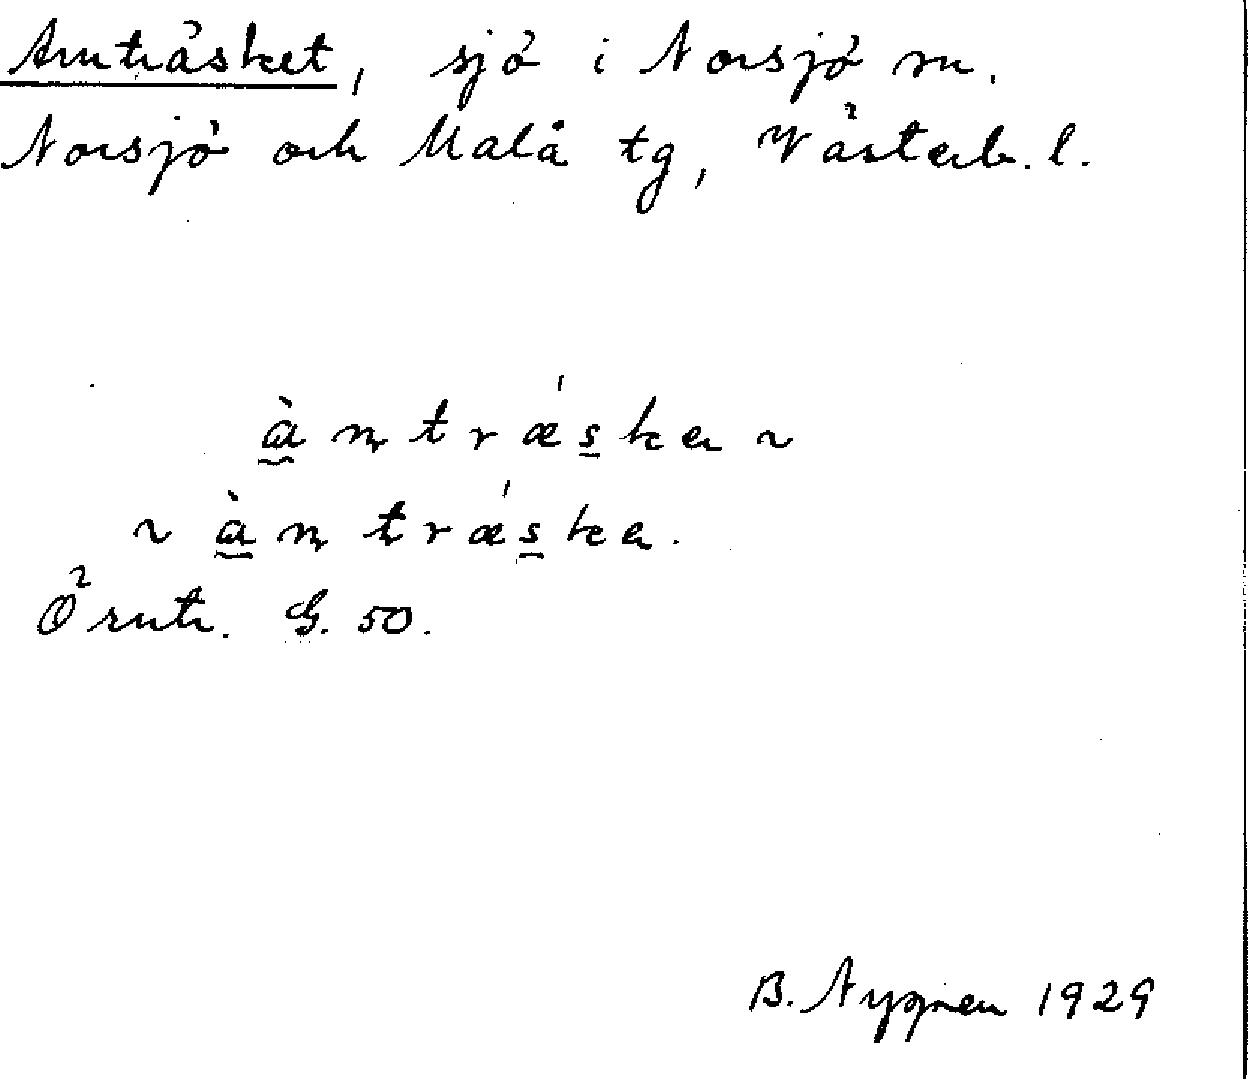 Arnträsket, sjö i Norsjö sn.
Norsjö och Malå tg, Västerb. l.
àn̨træ´ske ~
~ àn̨træ´ske.
Östr. G. 50.
B. Nygren 1929